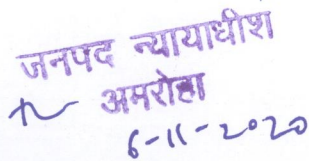 जनपद न्यायाधीश
अमरोहा
6-11-2020